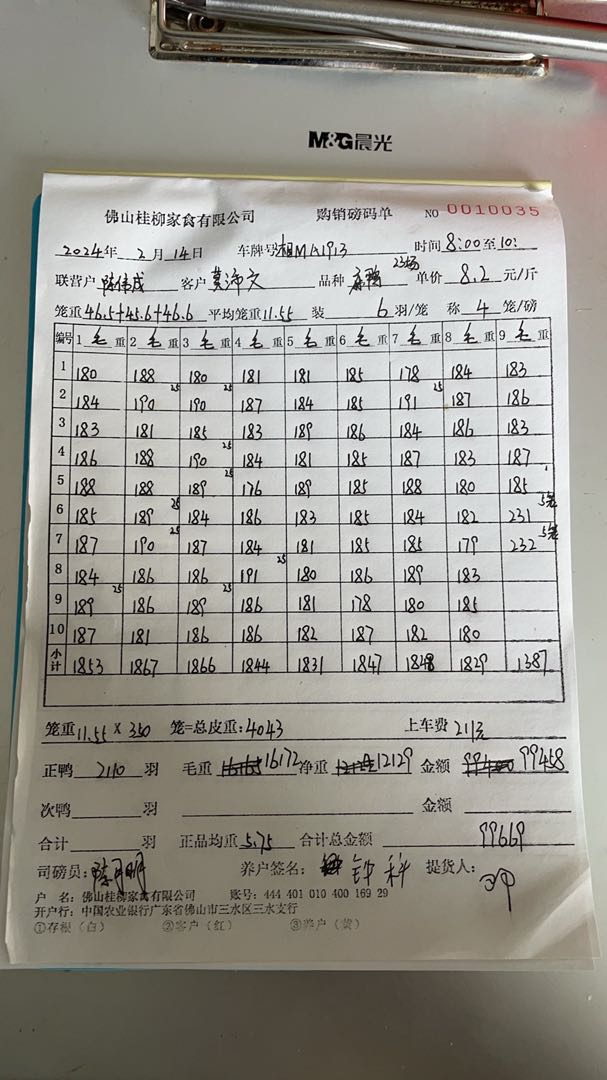 M&G晨光
佛山桂柳家禽有限公司 购销磅码单 NO 0010035
2024年 2月 14日 车牌号湘MA1913 时间8:00至10:
联营户 陈伟成 客户 莫沛文 品种 23场 单价 8.2 元/斤
笼重46.5+45.6+46.6 平均笼重11.55 装 6 羽/笼 称 4 笼/磅
编号 1 毛 重 2 毛 重 3 毛 重 4 毛 重 5 毛 重 6 毛 重 7 毛 重 8 毛 重 9 毛 重
1 180 188 180 181 181 185 178 184 183
2 184 190 25 190 25 187 184 185 191 25 187 186
3 183 181 185 183 189 186 184 186 183
4 186 188 190 25 184 181 185 187 183 187
5 188 188 189 25 176 189 185 188 180 185
6 185 189 25 184 186 183 185 184 182 231 5笼
7 187 190 25 187 184 181 185 185 179 232 5笼
8 184 186 186 191 25 180 186 189 183
9 189 25 186 189 25 186 181 178 180 185
10 187 181 186 186 182 187 182 180
小计 1853 1867 1866 1844 1831 1847 1848 1829 1387
笼重11.55 × 350 笼=总皮重:4043 上车费 211元
正鸭 2110 羽 毛重 16172 净重 12129 金额 99458
次鸭 羽 金额
合计 羽 正品均重 5.75 合计总金额 99669
司磅员: 养户签名: 科 提货人:
户 名: 佛山桂柳家禽有限公司 账号: 444 401 010 400 169 29
开户行: 中国农业银行广东省佛山市三水区三水支行
①存根(白) ②客户(红) ③养户(黄)